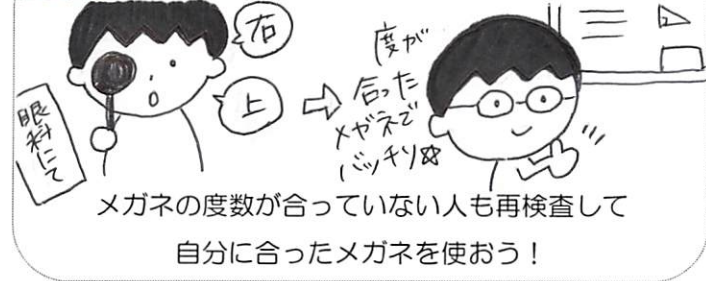 眼科にて
右
上
度が
合った
メガネで
バッチリ☆
メガネの度数が合っていない人も再検査して
自分に合ったメガネを使おう！